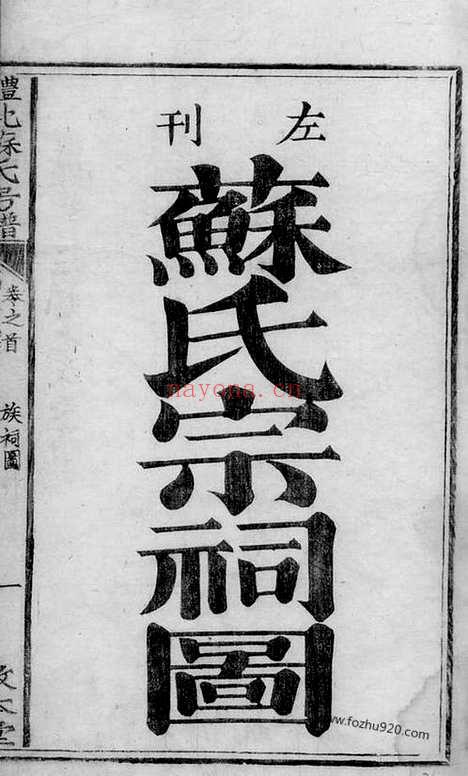 左刊
蘇氏宗祠圖
豐北蘇氏宗譜
卷之首
族祠圖
一
敦本堂
nayona.cn
www.fozhu920.com